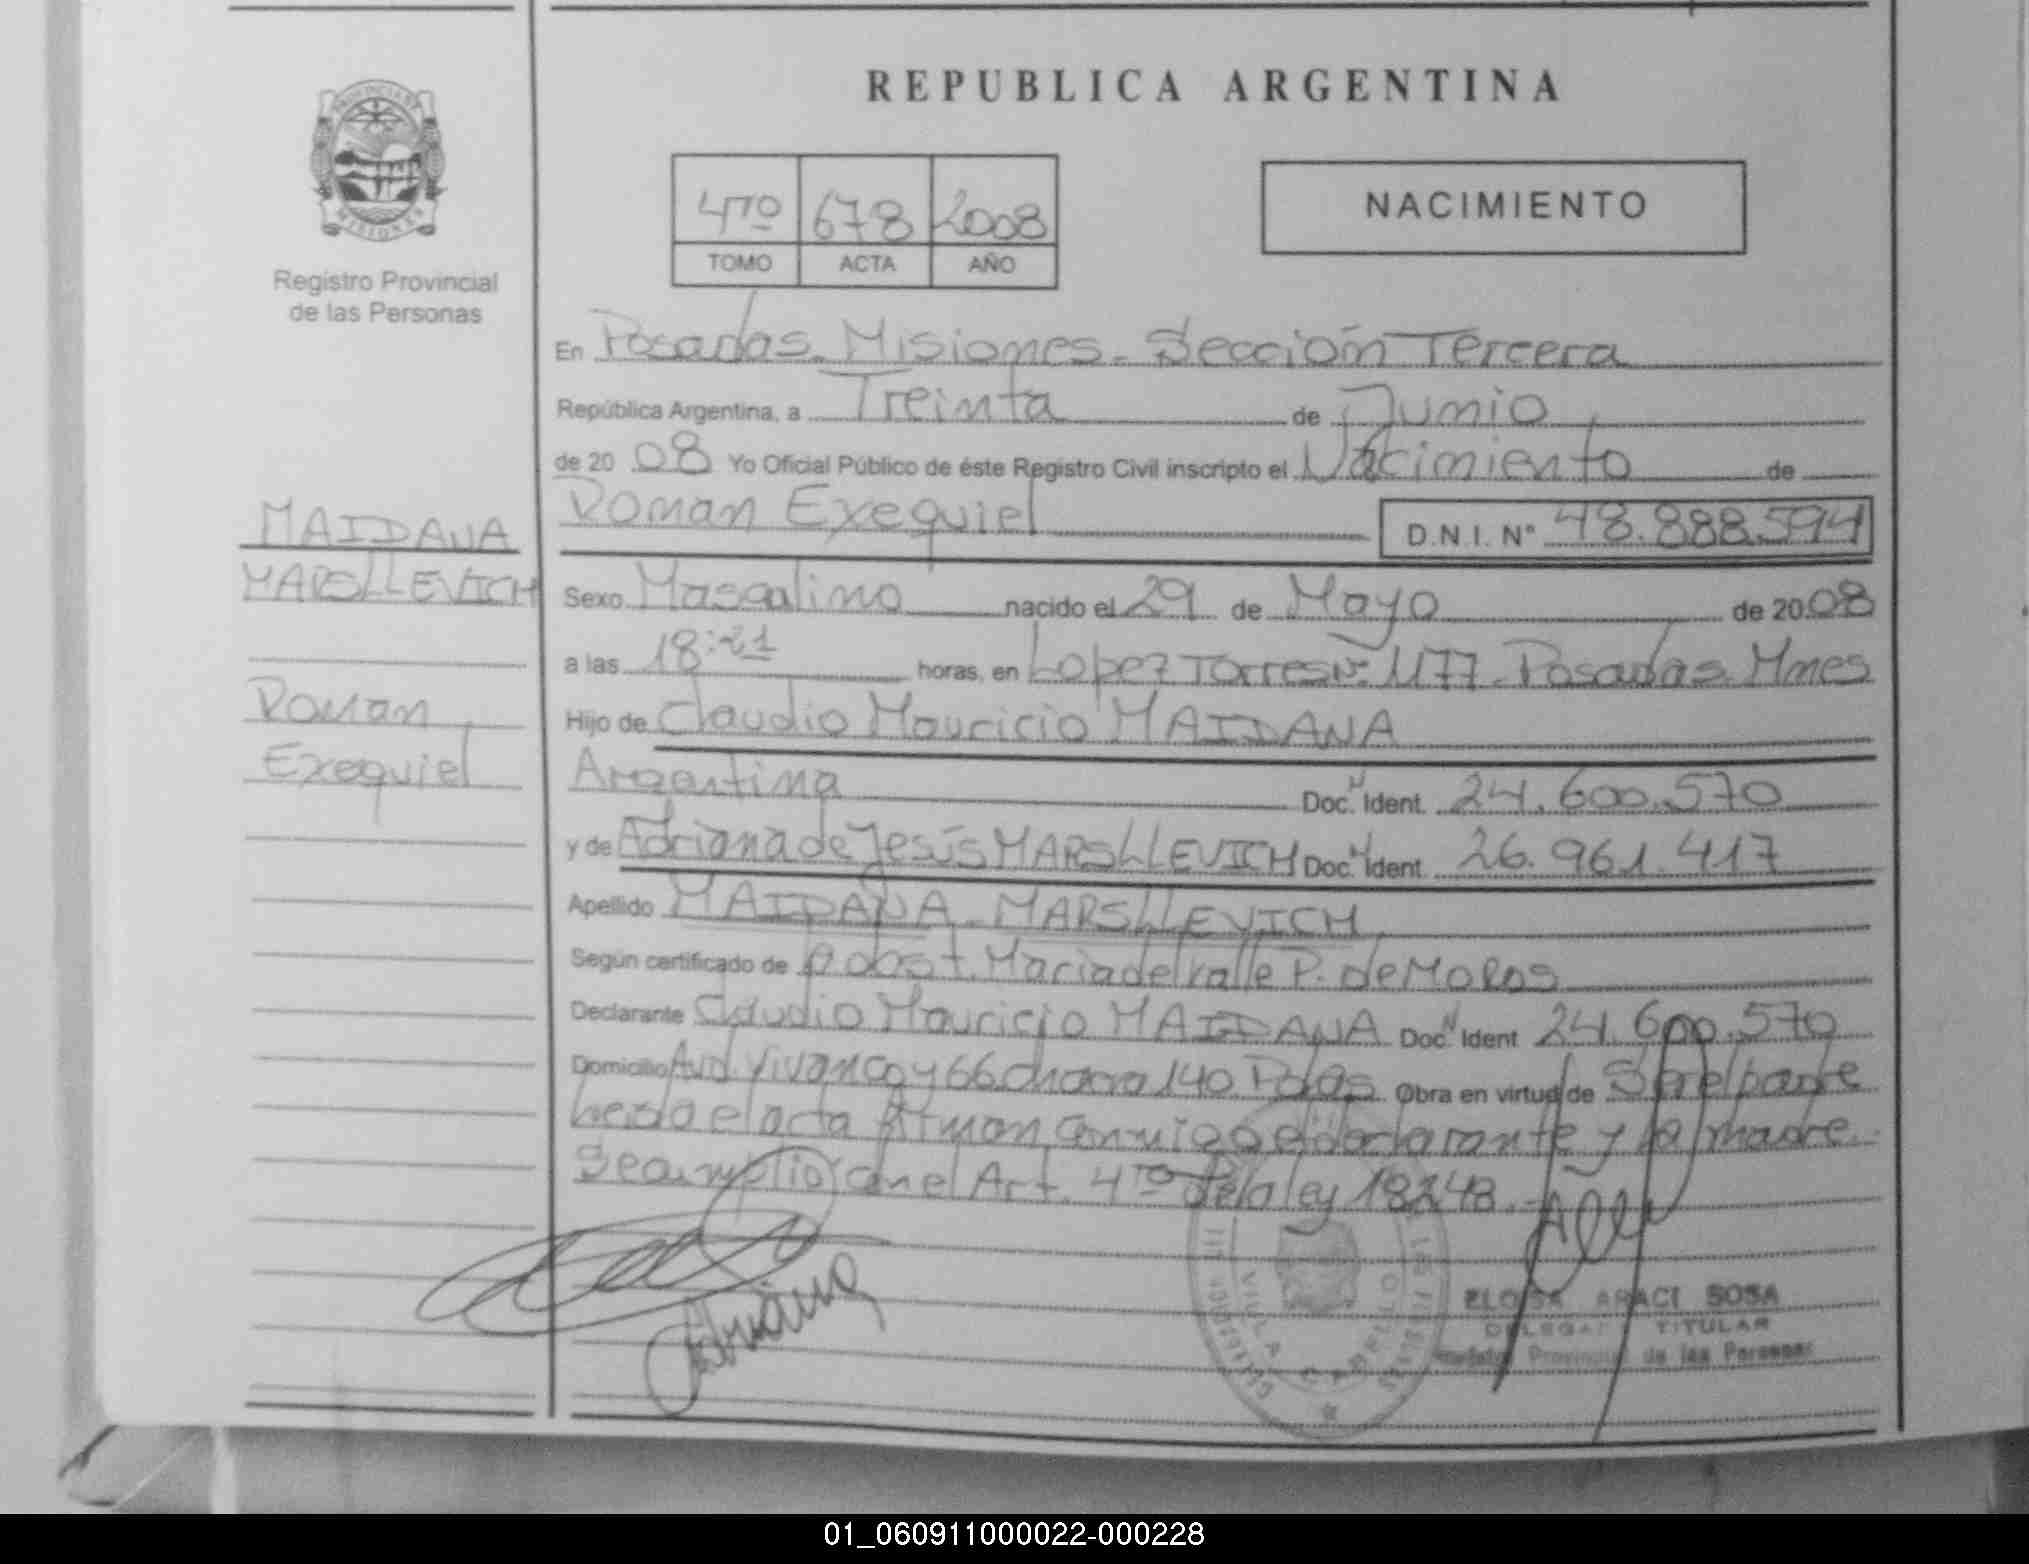 REPUBLICA ARGENTINA
PROVINCIA DE
MISIONES
Registro Provincial
de las Personas
4TO 678 2008
TOMO ACTA AÑO
NACIMIENTO
En Posadas. Misiones. Sección Tercera
República Argentina, a Treinta de Junio
de 2008 Yo Oficial Público de éste Registro Civil inscripto el Nacimiento de
Roman Exequiel D.N.I. Nº 48.888.594
MAIDANA
MARSLLEVICH
Roman
Exequiel
Sexo Masculino nacido el 29 de Mayo de 2008
a las 18:21 horas, en Lopez Torres Nº 1177. Posadas. Mnes
Hijo de Claudio Mauricio MAIDANA
Argentina Doc. N Ident. 24.600.570
y de Adriana de Jesús MARSLLEVICH Doc. N Ident. 26.961.417
Apellido MAIDANA - MARSLLEVICH
Según certificado de Obst. Maria del Valle P. de Moros
Declarante Claudio Mauricio MAIDANA Doc. N Ident 24.600.570
Domicilio Avd. Vivanco y 66 Chacra 140 Pdas. Obra en virtud de Ser el padre
Leida el acta firman conmigo el declarante y la madre.
Se cumplio con el Art. 4TO de la ley 18248.
Adriana
ELOISA ARACI SOSA
TITULAR
Provincial de las Personas
VILLA CABELLO
01_060911000022-000228